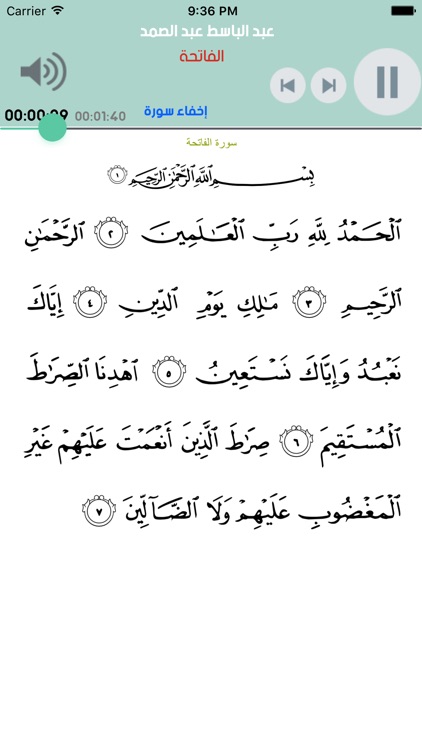 Carrier 9:36 PM
عبد الباسط عبد الصمد
الفاتحة
00:00:09 00:01:40 إخفاء سورة
سورة الفاتحة
بِسْمِ ٱللَّهِ ٱلرَّحْمَٰنِ ٱلرَّحِيمِ ١
ٱلْحَمْدُ لِلَّهِ رَبِّ ٱلْعَٰلَمِينَ ٢ ٱلرَّحْمَٰنِ
ٱلرَّحِيمِ ٣ مَٰلِكِ يَوْمِ ٱلدِّينِ ٤ إِيَّاكَ
نَعْبُدُ وَإِيَّاكَ نَسْتَعِينُ ٥ ٱهْدِنَا ٱلصِّرَٰطَ
ٱلْمُسْتَقِيمَ ٦ صِرَٰطَ ٱلَّذِينَ أَنْعَمْتَ عَلَيْهِمْ غَيْرِ
ٱلْمَغْضُوبِ عَلَيْهِمْ وَلَا ٱلضَّآلِّينَ ٧